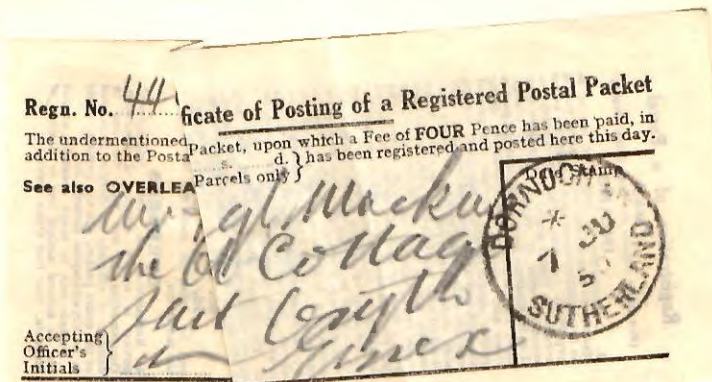 Regn. No. 44
ficate of Posting of a Registered Postal Packet
The undermentioned Packet, upon which a Fee of FOUR Pence has been paid, in
addition to the Posta s. d. } has been registered and posted here this day.
Parcels only }
See also OVERLEA
Date Stamp
DORNOCH
* 
7 JU
5
SUTHERLAND
the Cottag
Essex
Accepting
Officer's
Initials }